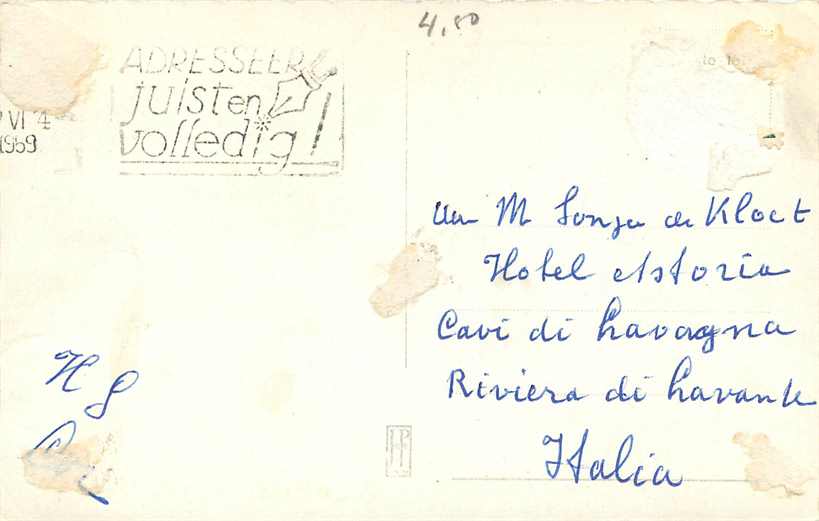 4,50
ADRESSEER
juist en
volledig!
VI 4
1959
M de Kloet
Hotel Astoria
Cavi di Lavagna
Riviera di Levante
Italia
H G